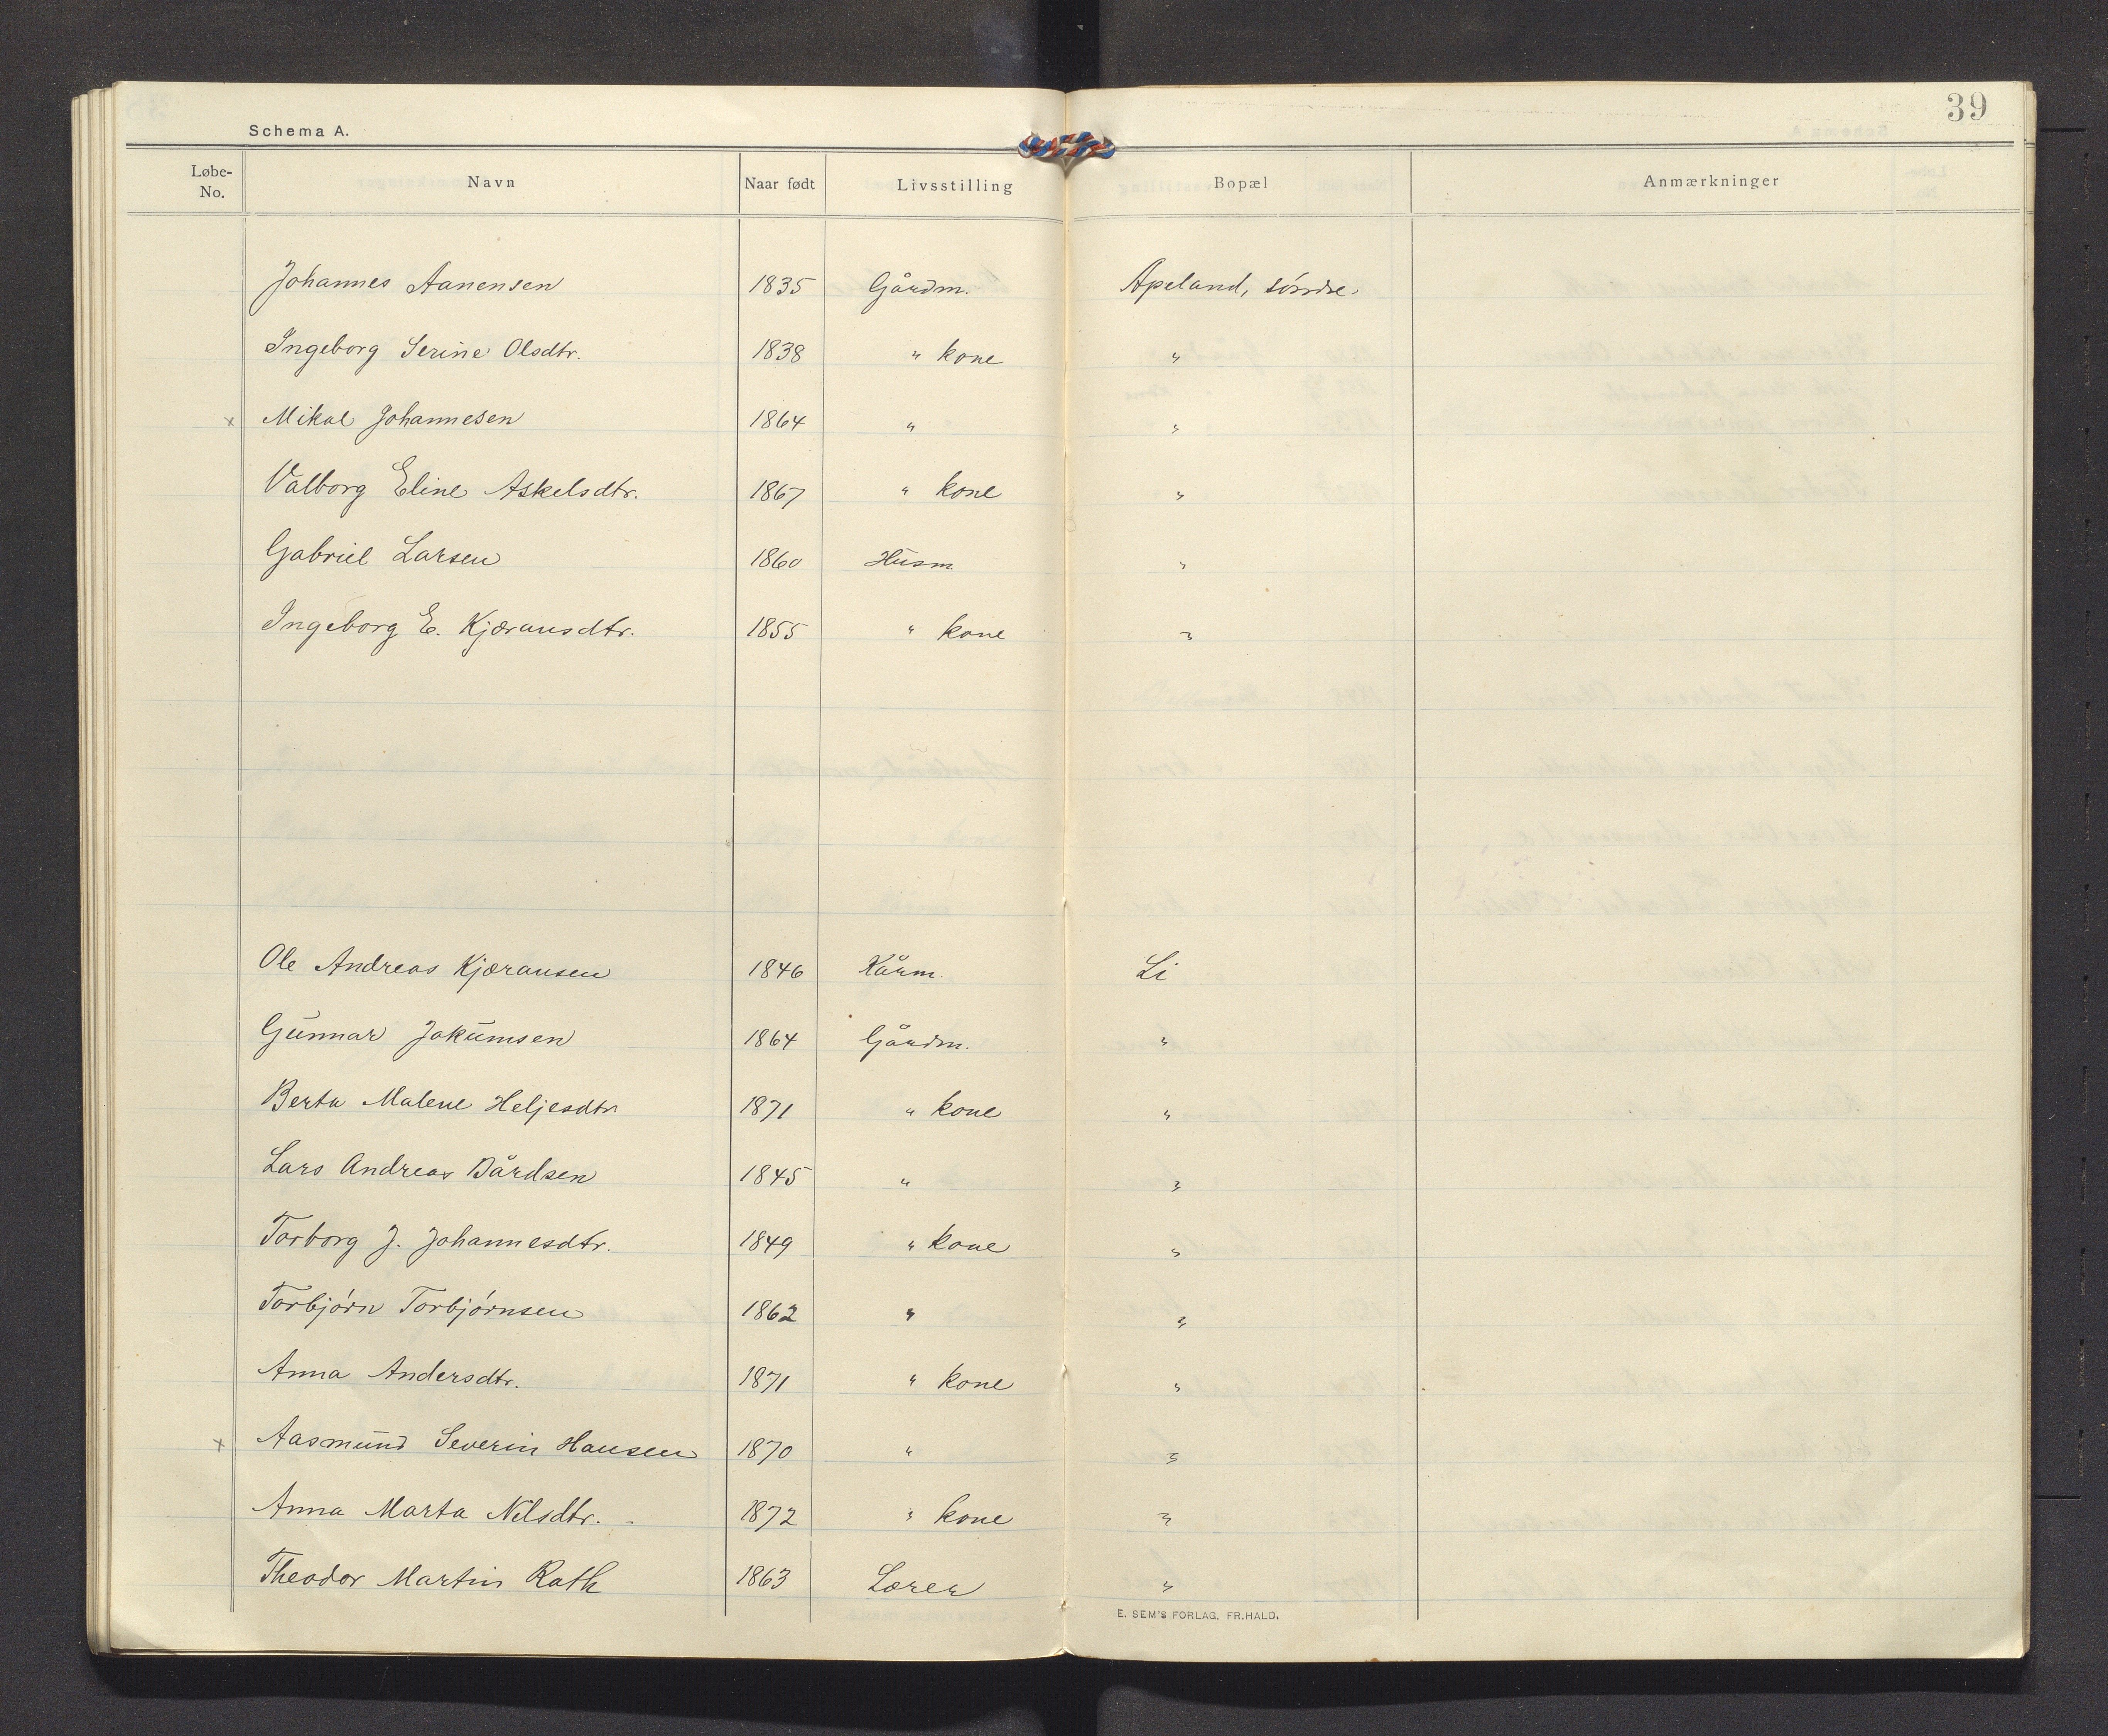 39
Schema A.
Løbe-No. Navn Naar født Livsstilling Bopæl Anmærkninger
Johannes Aanensen 1835 Gårdm. Apeland, søndre.
Ingeborg Serine Olsdtr. 1838 " kone "
x Mikal Johannesen 1864 " "
Valborg Eline Askelsdtr. 1867 " kone "
Gabriel Larsen 1860 Husm. "
Ingeborg E. Kjæransdtr. 1855 " kone "
Ole Andreas Kjæransen 1846 Kårm. Li
Gunnar Jakumsen 1864 Gårdm. "
Berta Malene Heljesdtr. 1871 " kone "
Lars Andreas Bårdsen 1845 " "
Torborg J. Johannesdtr. 1849 " kone "
Torbjørn Torbjørnsen 1862 " "
Anna Andersdtr. 1871 " kone "
x Aasmund Severin Hansen 1870 " "
Anna Marta Nilsdtr. 1872 " kone "
Theodor Martin Rath 1863 Lærer "
E. SEM'S FORLAG, FR.HALD.